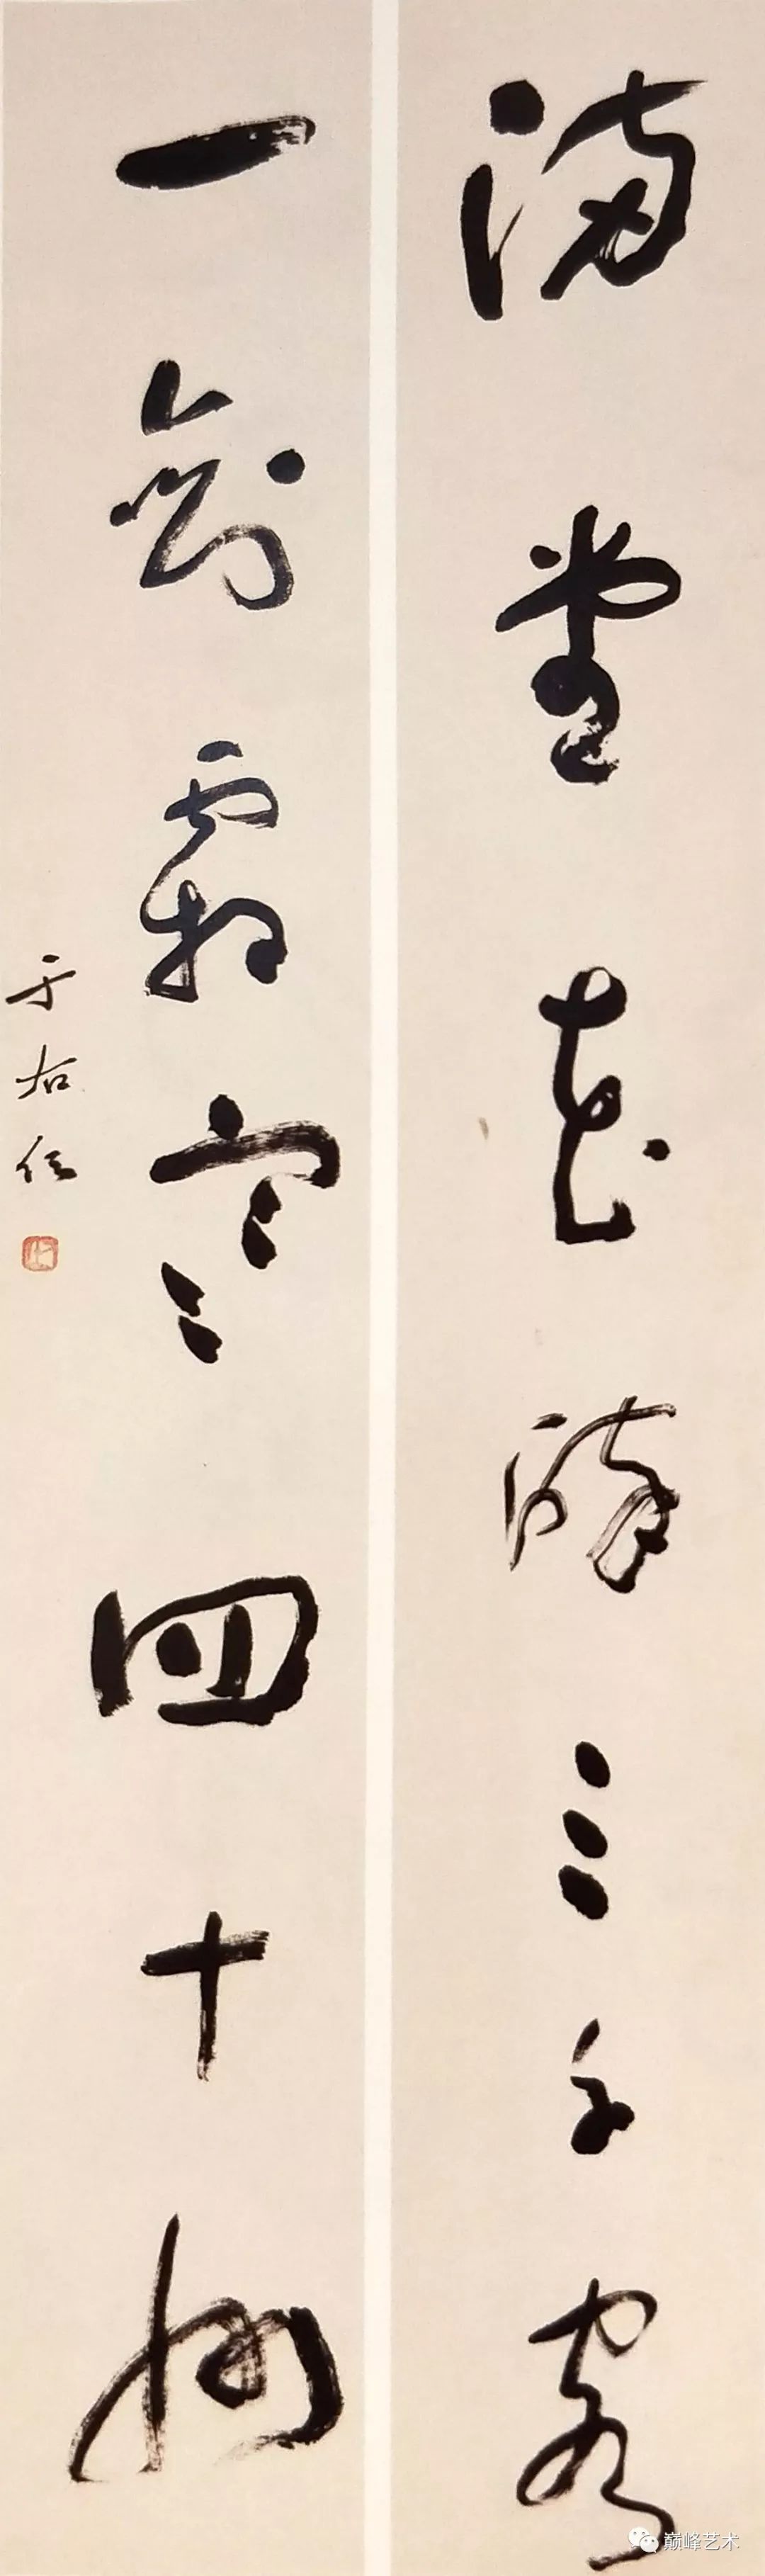 满堂花醉三千客
一剑霜寒四十州
于右任
巅峰艺术